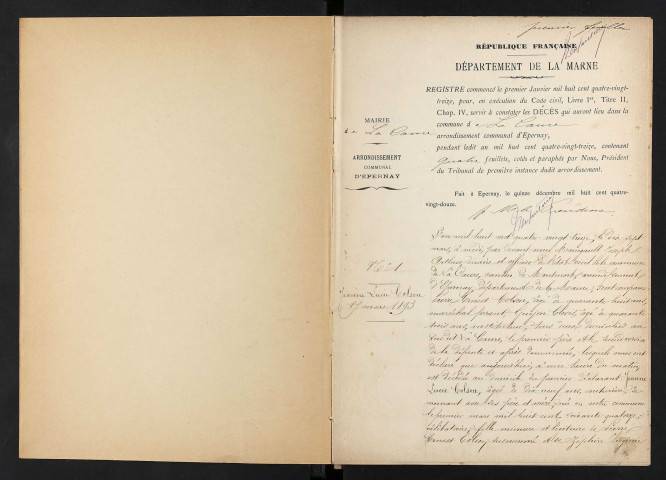 premier feuillet
RÉPUBLIQUE FRANÇAISE
DÉPARTEMENT DE LA MARNE
REGISTRE commencé le premier Janvier mil huit cent quatre-vingt-
treize, pour, en exécution du Code civil, Livre Ier, Titre II,
Chap. IV, servir à constater les DÉCÈS qui auront lieu dans la
commune de La Caure
arrondissement communal d'Epernay,
pendant ledit an mil huit cent quatre-vingt-treize, contenant
quatre feuillets, cotés et paraphés par Nous, Président
du Tribunal de première instance dudit arrondissement.
Fait à Epernay, le quinze décembre mil huit cent quatre-
vingt-douze.
MAIRIE
de La Caure
ARRONDISSEMENT
COMMUNAL
D'EPERNAY
No 1
Jeanne Lucie Colson
17 mars 1893
L'an mil huit cent quatre vingt treize, le dix sept
mars, à midi, par devant nous Joseph
Arthur, maire et officier de l'état civil de la commune
de La Caure, canton de Montmort, arrondissement
d'Epernay, département de la Marne, sont comparus
Pierre Ernest Colson, âgé de quarante huit ans,
maréchal ferrant, Clovis, âgé de quarante
trois ans, instituteur, tous deux domiciliés au
dit La Caure, le premier père et le second voisin
de la défunte, lesquels nous ont
déclaré que aujourd'hui, à une heure du matin,
est décédée au domicile du premier déclarant Jeanne
Lucie Colson, âgée de dix neuf ans, couturière, de
meurant avec ses père et mère, née en cette commune
le premier mars mil huit cent soixante quatorze,
célibataire, fille mineure et légitime de Pierre
Ernest Colson, susnommé et de Joséphine